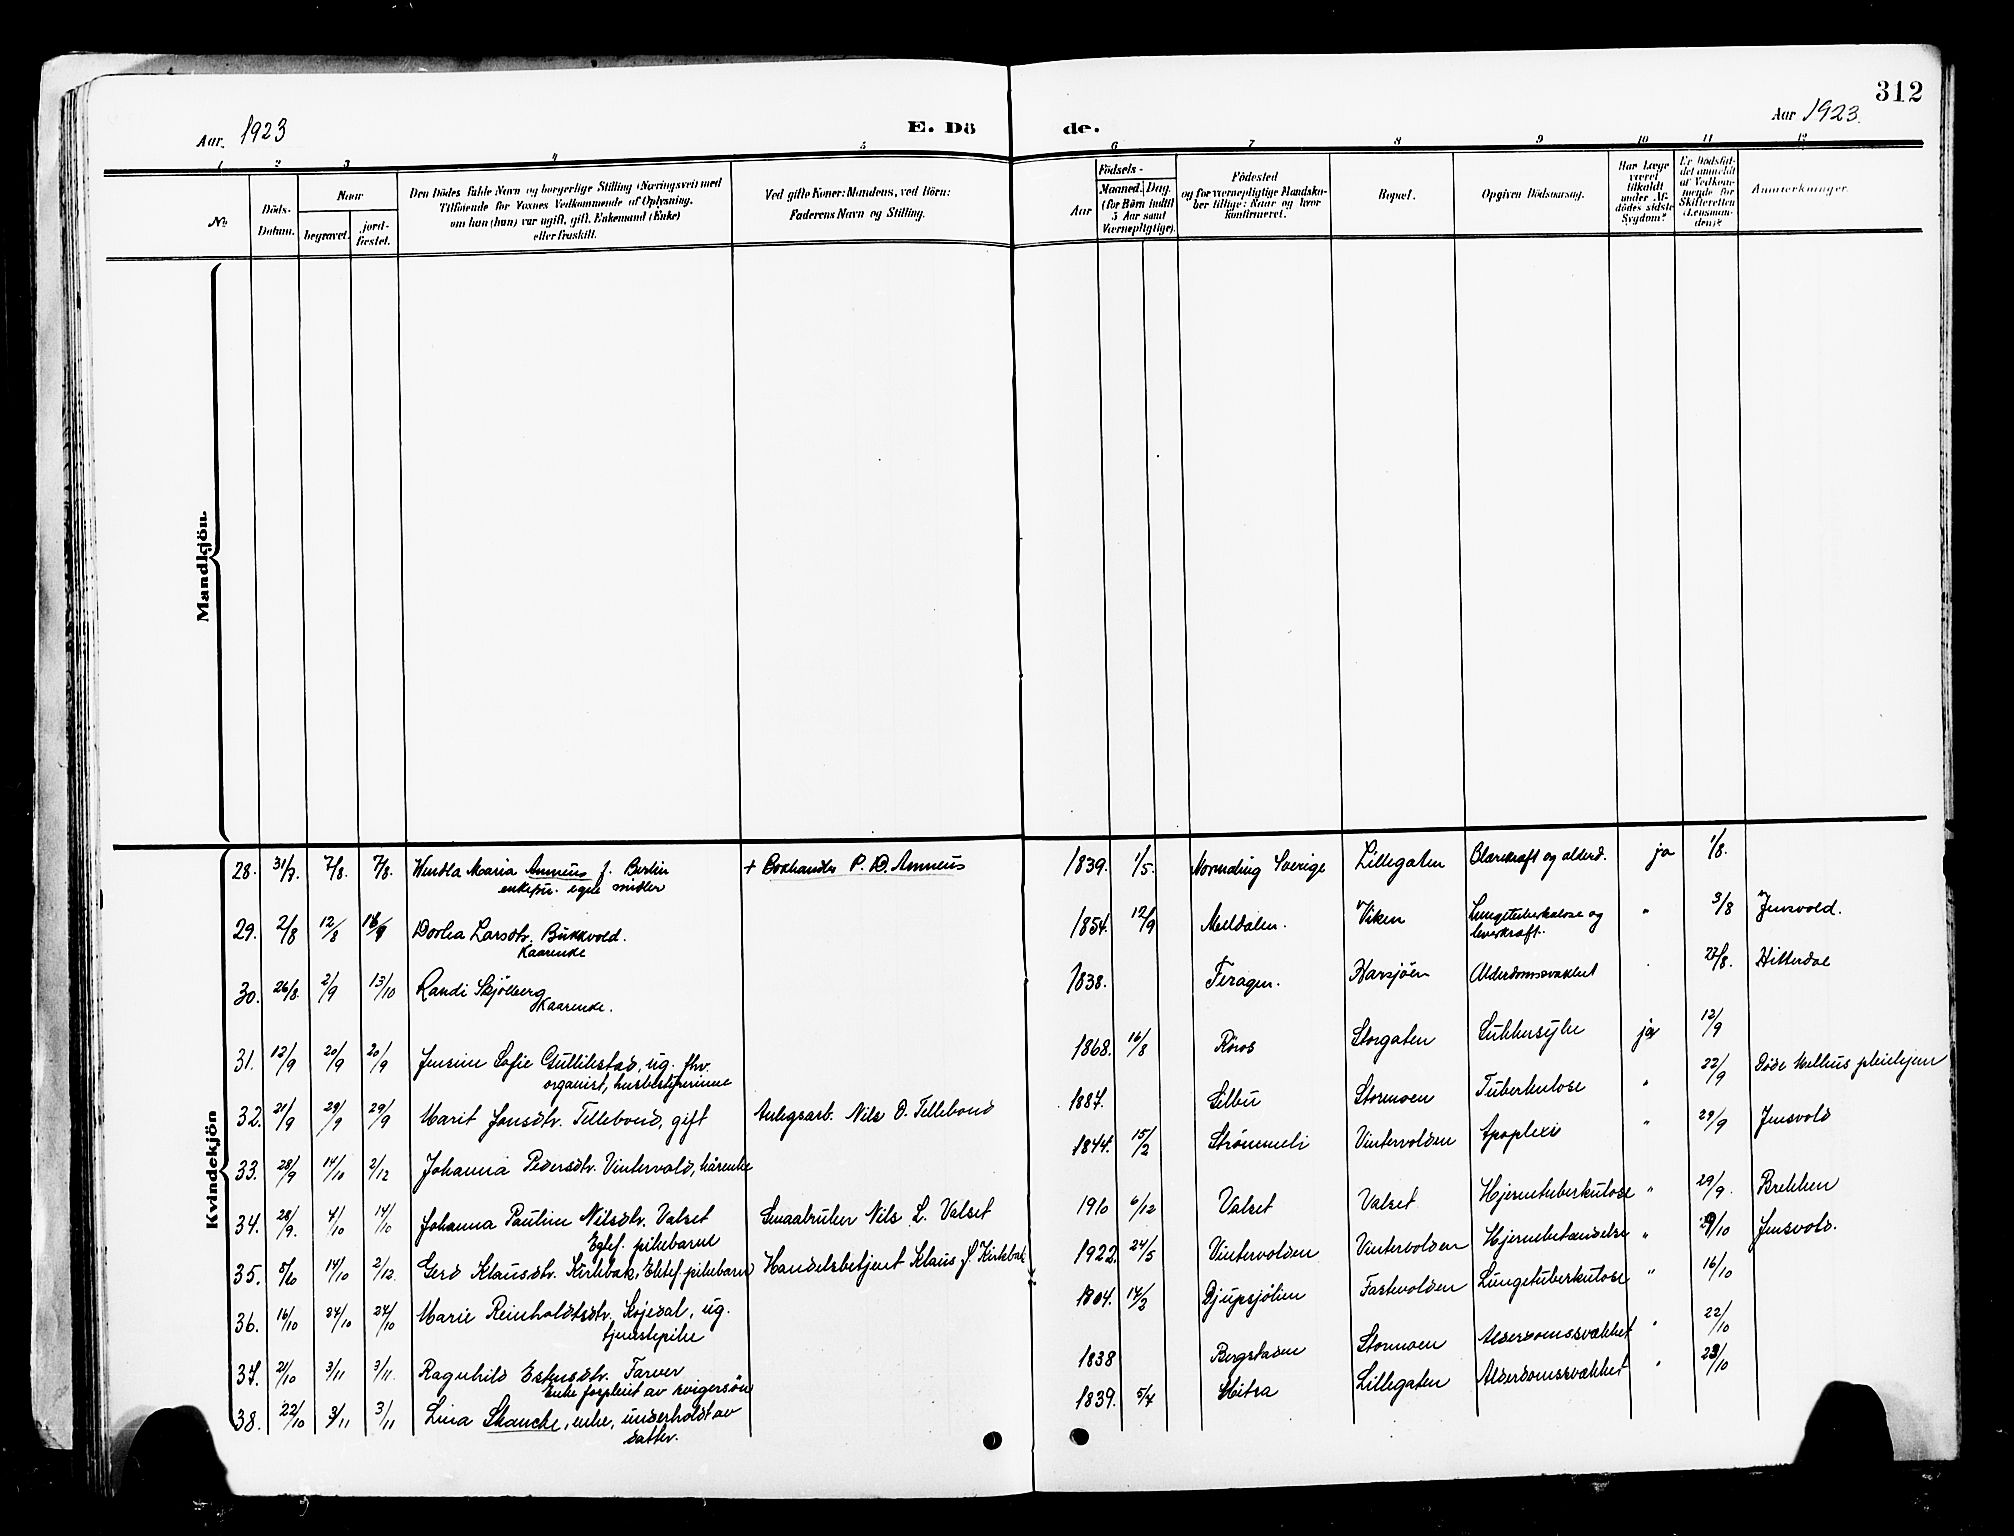 312
Aar. 1923
E. Dö
de.
Aar 1923.
1 2 3 4 5 6 7 8 9 10 11 12
No.
Döds-Datum.
Naar
begravet.
jord-fæstet.
Den Dödes fulde Navn og borgerlige Stilling (Næringsvei) med
Tilföiende for Voxnes Vedkommende af Oplysning,
om han (hun) var ugift, gift, Enkemand (Enke)
eller fraskilt.
Ved gifte Koner: Mandens, ved Börn:
Faderens Navn og Stilling.
Födsels-
Aar
Maaned. Dag.
(for Børn indtil
5 Aar samt
Værnepligtige).
Födested
og for værnepligtige Mandska-
ber tillige: Naar og hvor
konfirmeret.
Bopæl.
Opgiven Dödsaarsag.
Har Læge
været
tilkaldt
under Af-
dödes sidste
Sygdom?
Er Dödsfal-
det anmeldt
af Vedkom-
mende for
Skifteretten
(Lensman-
den)?
Anmærkninger.
Mandkjön.
Kvindekjön
28. 31/7 7/8. 7/8. Wendla Maria Anneus f. Berlin + Boxhandler P. D. Anneus 1839. 1/5. Normding Sverige Lillegaten Blærekræft og alderd. ja 1/8.
enkefru. egne midler
29. 2/8 12/8 Dorlia Larsdtr. Bukkvold. 1854. 12/9 Meldalen. Viken Lungetuberkulose og " 3/8 Jensvold.
Kaarenke leverkræft.
30. 26/8 2/9 13/10 Randi Skjølberg 1838. Feragen. Harsjöen Alderdomssvakhet 27/8. Hitterdal
Kaarenke.
31. 12/9 20/9 20/9 Jensine Sofie Gullikstad, ug. fhv. 1868. 16/8 Röros Storgaten Sukkersyke ja 12/9
organist, husbestyrerinne
32. 21/9 29/9 29/9 Marit Jonsdtr. Tellebond, gift Anlegsarb. Nils O. Tellebond 1887. Selbu Stormoen Tuberkulose " 22/9 Döde Mellius pleiehjem
33. 28/9 14/10 2/12 Johanna Pedersdtr. Vintervold, kårenke 1844. 15/2 Strömmeli Vintervolden Apoplexi " 29/9 Jensvold
34. 28/9. 4/10 14/10 Johanna Pauline Nilsdtr. Valset Smaabruker Nils L. Valset 1910 6/12 Valset Valset Hjernetuberkulose " 29/9. Brekken
Egtef. pikebarn
35. 5/10 14/10 2/12. Gerd Klausdtr. Kirkbak, Ektef. pikebarn Handelsbetjent Klaus J. Kirkebak 1922. 24/5 Vintervolden Vintervolden Hjernebetændelse " /10 Jensvold.
36. 16/10 24/10 24/10 Marie Reinholdtsdtr. Skjedal, ug. 1904. 14/2 Djupsjölien Fastvolden Lungetuberkulose " 16/10
tjenestepike
37. 21/10 3/11 3/11. Ragnhild Estensdtr. Farver 1838 Bergstaden Stormoen Alderdomssvækket " 22/10
Enke forpleiet av svigersön
38. 22/10 3/11 3/11 Lina Skancke, enke, underholdt av 1839. 5/4 Hitra Lillegaten Alderdomssvækket " 23/10
datter.